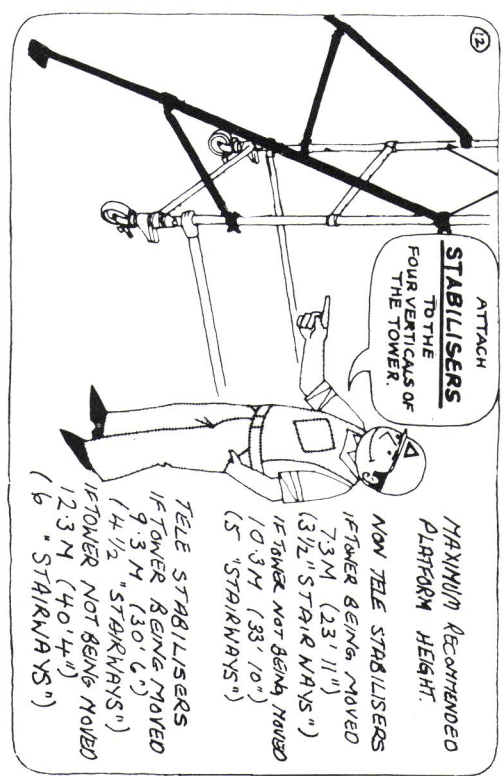 12
ATTACH
STABILISERS
TO THE
FOUR VERTICALS OF
THE TOWER.
MAXIMUM RECOMMENDED
PLATFORM HEIGHT.
NON TELE STABILISERS
IF TOWER BEING MOVED
7.3 M (23' 11")
(3½ "STAIRWAYS")
IF TOWER NOT BEING MOVED
10.3 M (33' 10")
(5 "STAIRWAYS")
TELE STABILISERS
IF TOWER BEING MOVED
9.3 M (30' 6")
(4 1/2 "STAIRWAYS")
IF TOWER NOT BEING MOVED
12.3 M (40' 4")
(6 "STAIRWAYS")